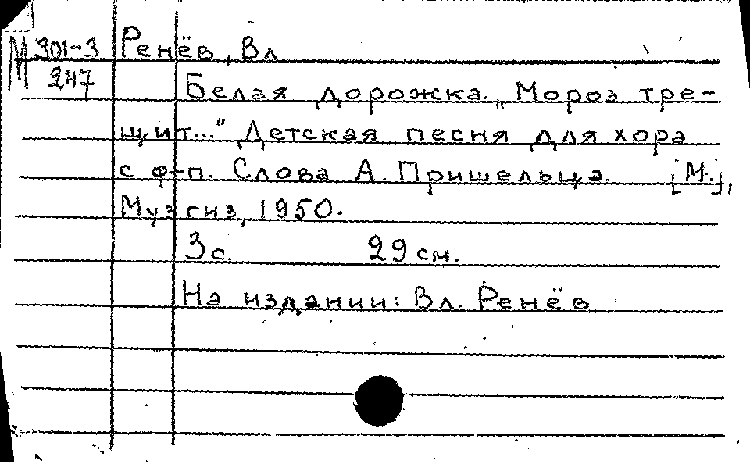 М 301-3 Ренёв, Вл
247
Белая дорожка. „Мороз тре-
щит..." Детская песня для хора
с ф-п. Слова А. Пришельца. [М.],
Музгиз, 1950.
3 с. 29 см.
На издании: Вл. Ренёв